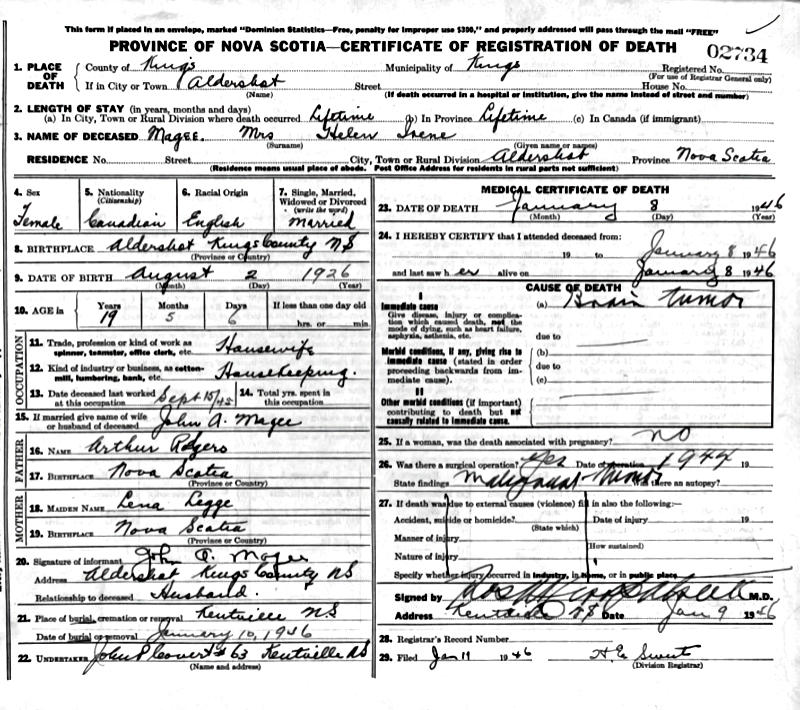 This form if placed in an envelope, marked "Dominion Statistics—Free, penalty for improper use $300," and properly addressed will pass through the mail "FREE"
PROVINCE OF NOVA SCOTIA—CERTIFICATE OF REGISTRATION OF DEATH
02734
1. PLACE OF DEATH County of Kings Municipality of Kings Registered No.
(For use of Registrar General only)
If in City or Town Aldershot Street House No.
(Name) (If death occurred in a hospital or institution, give the name instead of street and number)
2. LENGTH OF STAY (in years, months and days)
(a) In City, Town or Rural Division where death occurred Lifetime (b) In Province Lifetime (c) In Canada (if immigrant)
3. NAME OF DECEASED Magee. Mrs Helen Irene
(Surname) (Given name or names)
RESIDENCE No. Street City, Town or Rural Division Aldershot Province Nova Scotia
(Residence means usual place of abode. Post Office Address for residents in rural parts not sufficient)
4. Sex 5. Nationality (Citizenship) 6. Racial Origin 7. Single, Married, Widowed or Divorced (write the word)
Female Canadian English Married
8. BIRTHPLACE Aldershot Kings County NS
(Province or Country)
9. DATE OF BIRTH August 2 1926
(Month) (Day) (Year)
10. AGE in Years Months Days If less than one day old
19 5 6 hrs. or min.
OCCUPATION
11. Trade, profession or kind of work as spinner, teamster, office clerk, etc. Housewife
12. Kind of industry or business, as cotton-mill, lumbering, bank, etc. Housekeeping.
13. Date deceased last worked at this occupation Sept 15/45 14. Total yrs. spent in this occupation
15. If married give name of wife or husband of deceased John A. Magee
FATHER
16. Name Arthur Rogers
17. Birthplace Nova Scotia
(Province or Country)
MOTHER
18. Maiden Name Lena Legge
19. Birthplace Nova Scotia
(Province or Country)
20. Signature of informant John A. Magee
Address Aldershot Kings County NS
Relationship to deceased Husband.
21. Place of burial, cremation or removal Kentville NS
Date of burial or removal January 10, 1946
22. Undertaker John P Covert #63 Kentville NS
(Name and address)
MEDICAL CERTIFICATE OF DEATH
23. DATE OF DEATH January 8 1946
(Month) (Day) (Year)
24. I HEREBY CERTIFY that I attended deceased from:
19 to January 8 1946
and last saw h er alive on January 8 1946
CAUSE OF DEATH
I
Immediate cause (a) Brain tumor
Give disease, injury or complication which caused death, not the mode of dying, such as heart failure, asphyxia, asthenia, etc.
due to
Morbid conditions, if any, giving rise to immediate cause (stated in order proceeding backwards from immediate cause).
(b)
due to
(c)
II
Other morbid conditions (if important) contributing to death but not causally related to immediate cause.
25. If a woman, was the death associated with pregnancy? no
26. Was there a surgical operation? Yes Date of operation 1944 19
State findings Malignant Tumor Was there an autopsy?
27. If death was due to external causes (violence) fill in also the following:
Accident, suicide or homicide? Date of injury 19
(State which)
Manner of injury
(How sustained)
Nature of injury
Specify whether injury occurred in Industry, in Home, or in public place
Signed by M.D.
Address Kentville NS Date Jan 9 1946
28. Registrar's Record Number
29. Filed Jan 11 1946
(Division Registrar)